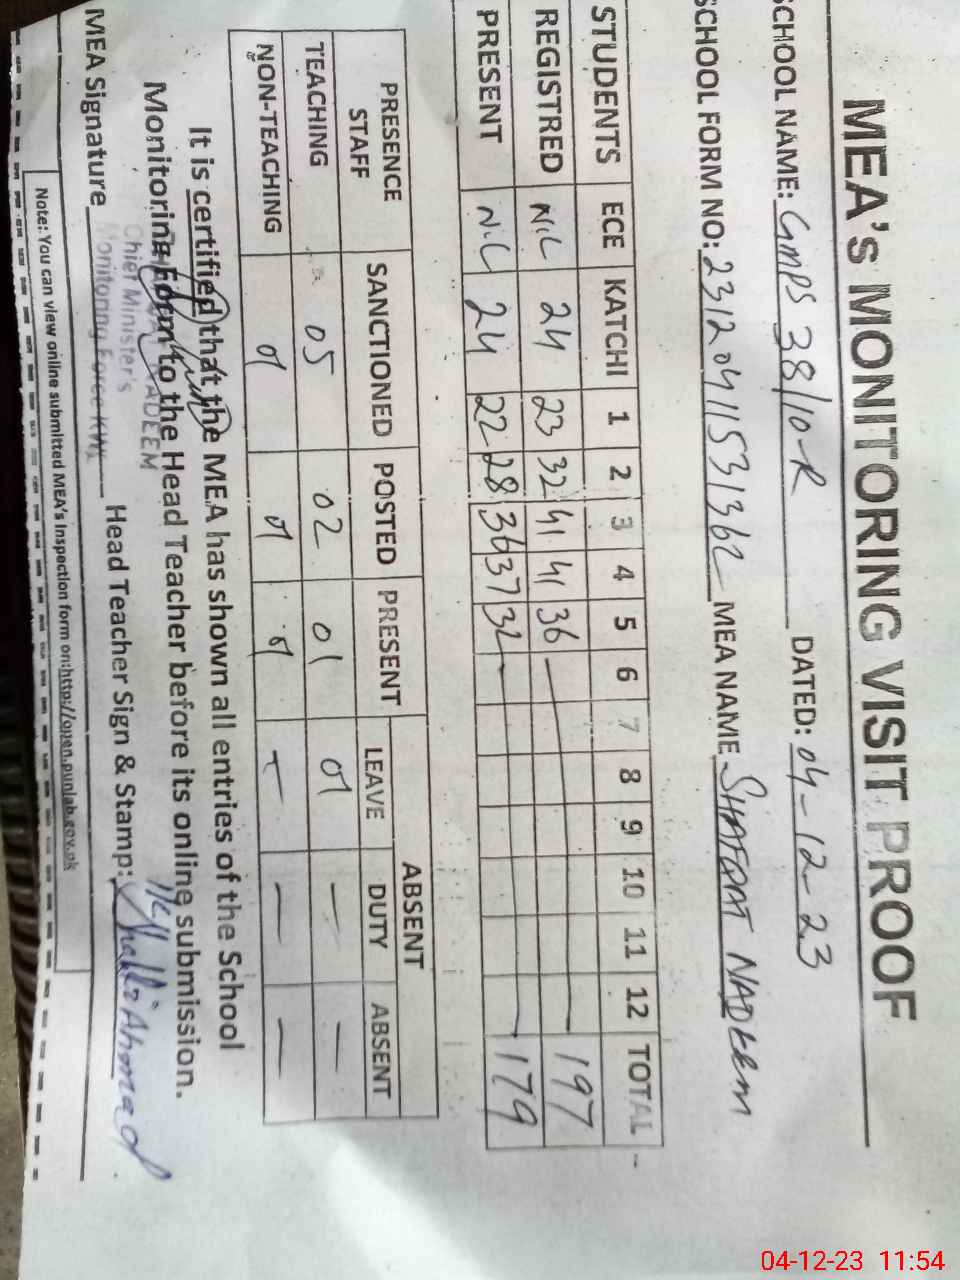 MEA's MONITORING VISIT PROOF
SCHOOL NAME: GMPS 38/10-R DATED: 04-12-23
SCHOOL FORM NO: 23120411531362 MEA NAME SHAFQAT NADEEM
STUDENTS ECE KATCHI 1 2 3 4 5 6 7 8 9 10 11 12 TOTAL
REGISTRED NIL 24 23 32 41 41 36 — 197
PRESENT NIL 24 22 28 36 37 32 — 179
PRESENCE STAFF SANCTIONED POSTED PRESENT ABSENT
LEAVE DUTY ABSENT
TEACHING 05 02 01 01 — —
NON-TEACHING 01 01 01 — — —
It is certified that the MEA has shown all entries of the School
Monitoring Form to the Head Teacher before its online submission.
NADEEM
Chief Minister's
Monitoring Force KWL
MEA Signature Head Teacher Sign & Stamp: Ahmad
Note: You can view online submitted MEA's Inspection form on:http://open.punjab.gov.pk
04-12-23 11:54